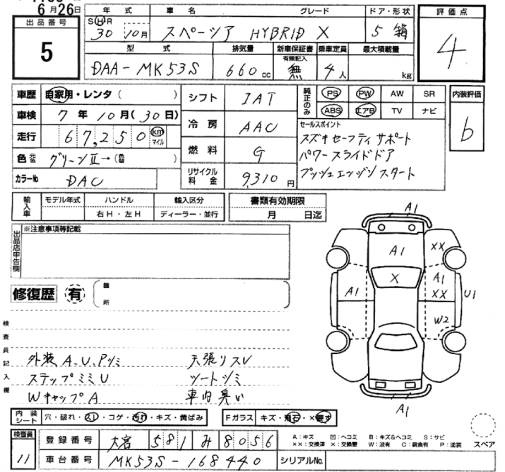 6月26日
出品番号
5
年式 車名 グレード ドア・形状
30年10月 スペーシア HYBRID X 5 箱
型式 排気量 新車保証書 乗車定員 最大積載量
有無記入
DAA-MK53S 660cc 無 4人 kg
評価点
4
車歴 自家用・レンタ( )
車検 7年10月(30日)
走行 67,250 km マイル
色 グリーンⅡ→( )
カラーNo DAC
シフト IAT
冷房 AAC
燃料 G
リサイクル料金 9,310円
純正のみ PS PW AW SR
ABS エアB TV ナビ
セールスポイント
スズキセーフティサポート
パワースライドドア
プッシュエンジンスタート
内装評価
b
輸入車 モデル年式 ハンドル 輸入区分
年 右H・左H ディーラー・並行
書類有効期限
月 日迄
出品店申告欄
※注意事項等記載
修復歴 有 箇所
検査員記入欄
外装A.U.Pツミ 天張リスV
ステップミミU シートシミ
WキャップA 車内臭い
内装シート 穴・破れ・スレ・コゲ・汚れ・キズ・黄ばみ
Fガラス キズ・飛石・×
検査員 11
登録番号 大宮 581 み 8056
車台番号 MK53S-168440 シリアルNo.
A1
A1 XX
X
A1 A1 XX U1
W2
A1
A:キズ 凹:ヘコミ B:キズ&ヘコミ S:サビ
××:交換済 ×:交換要 W:波有 C:腐食有 P:塗装
スペア